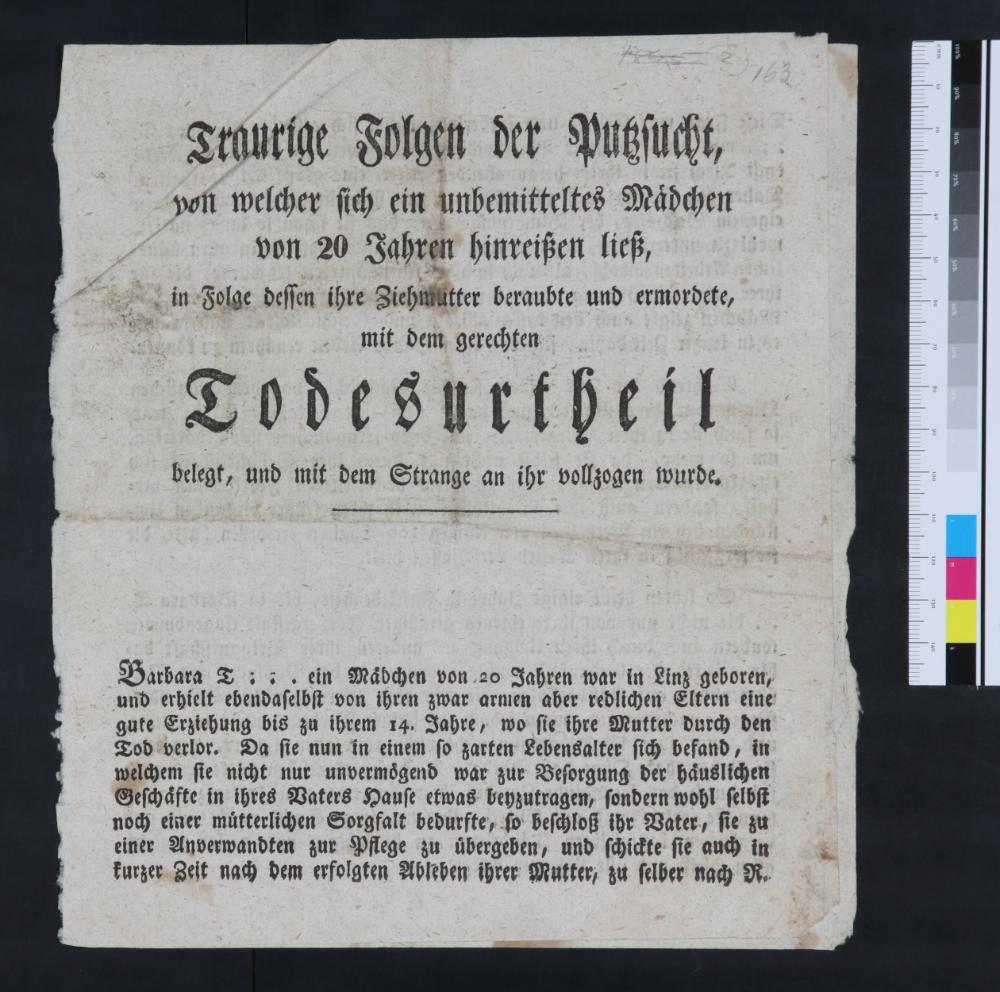 163
Traurige Folgen der Putzsucht,
von welcher sich ein unbemitteltes Mädchen
von 20 Jahren hinreißen ließ,
in Folge dessen ihre Ziehmutter beraubte und ermordete,
mit dem gerechten
Todesurtheil
belegt, und mit dem Strange an ihr vollzogen wurde.
Barbara T : : . ein Mädchen von 20 Jahren war in Linz geboren,
und erhielt ebendaselbst von ihren zwar armen aber redlichen Eltern eine
gute Erziehung bis zu ihrem 14. Jahre, wo sie ihre Mutter durch den
Tod verlor. Da sie nun in einem so zarten Lebensalter sich befand, in
welchem sie nicht nur unvermögend war zur Besorgung der häuslichen
Geschäfte in ihres Vaters Hause etwas beyzutragen, sondern wohl selbst
noch einer mütterlichen Sorgfalt bedurfte, so beschloß ihr Vater, sie zu
einer Anverwandten zur Pflege zu übergeben, und schickte sie auch in
kurzer Zeit nach dem erfolgten Ableben ihrer Mutter, zu selber nach R.